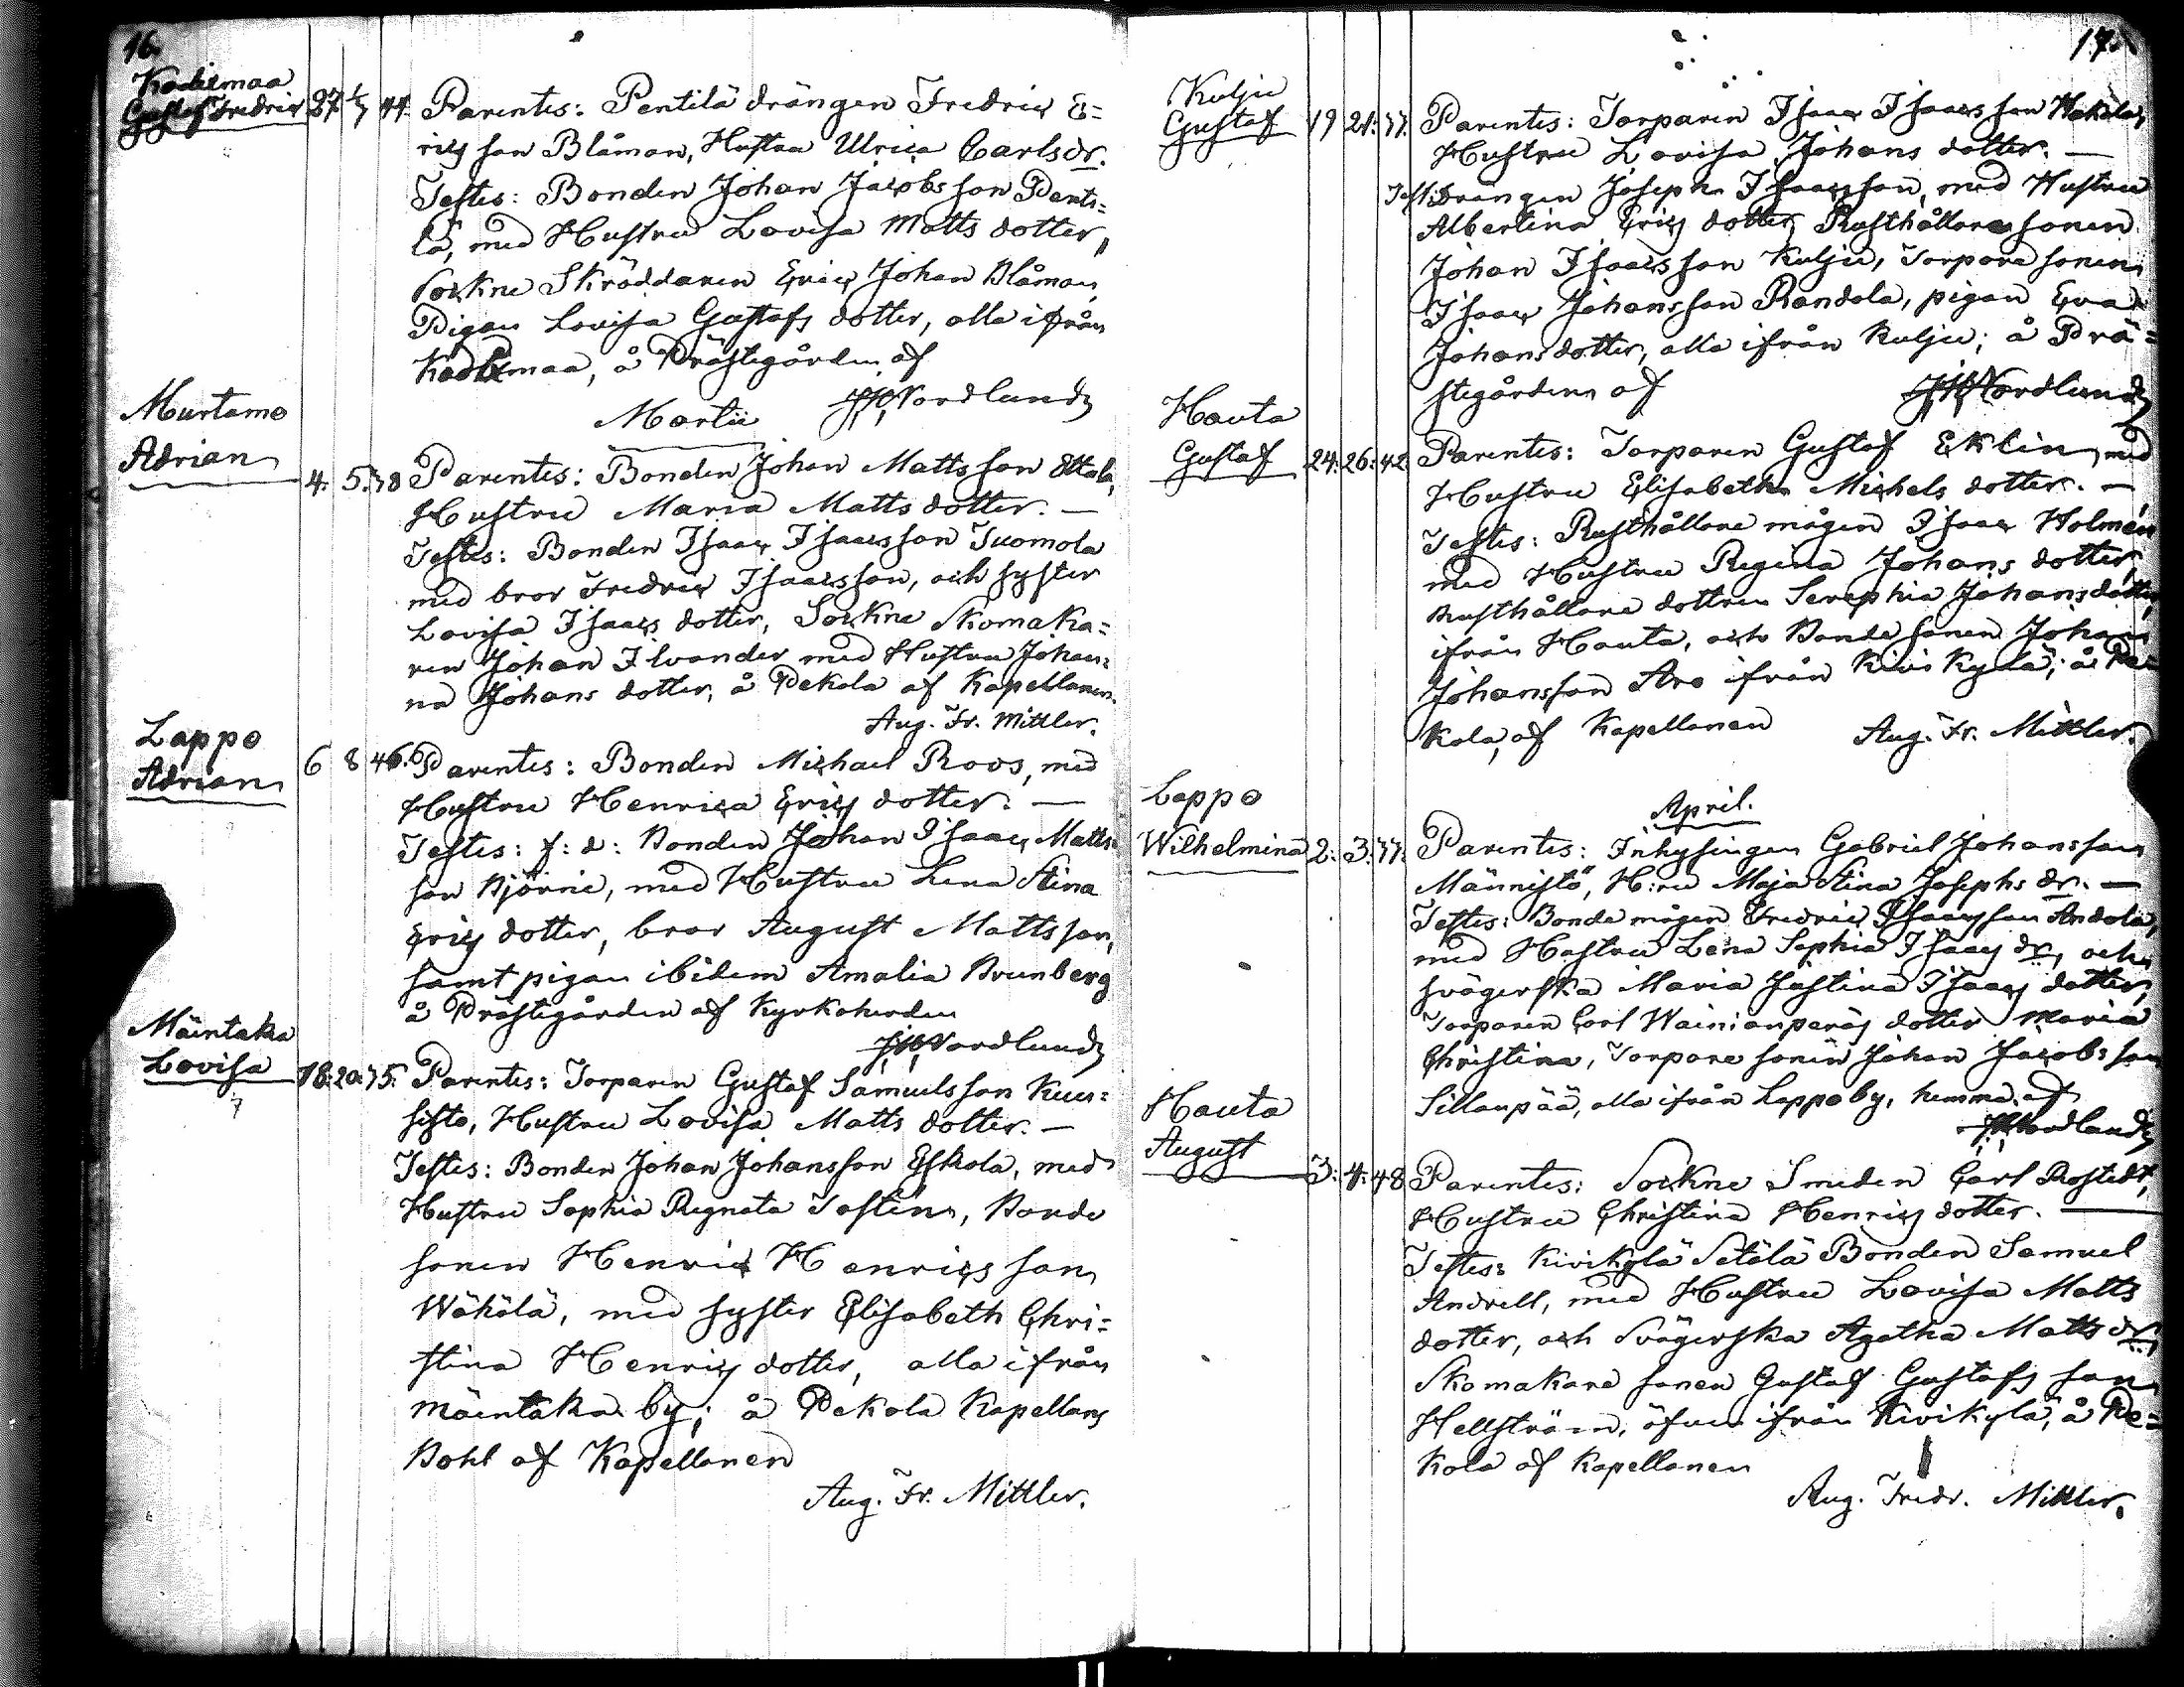 16.
Kadilmaa
Gustaf Fredric 27 1/3 44. Parentes: Pentilä drängen Fredric E=
rics son Blåman, Hustru Ulrica Carls dr.
Testes: Bonden Johan Jacobs son Penti=
lä, med Hustru Lovisa Matts dotter,
Sockne Skräddaren Eric Johan Blåman,
Pigan Lovisa Gustafs dotter, alla ifrån
maa, å Prästegården af
Nordlund
Martii
Murtamo
Adrian 4. 5. 38 Parentes: Bonden Johan Matts son Ottala,
Hustru Maria Matts dotter. —
Testes: Bonden Isaac Isaacs son Tuomola
med bror Fredric Isaacsson, och syster
Lovisa Isaacs dotter, Sockne Skomaka=
ren Johan Ilvander med Hustru Johan=
na Johans dotter, å Pekola af Kapellanen.
Aug. Fr. Mittler.
Lappo
Adrian 6 8 46. Parentes: Bonden Michael Roos, med
Hustru Henrica Erics dotter. —
Testes: f: d: Bonden Johan Isaac Matts
son Björni, med Hustru Lena Stina
Erics dotter, bror August Matts son,
samt pigan ibidem Amalia Brunberg
å Prästegården af Kyrkoherden
Nordlund
Mäintaka
Lovisa 18. 20. 35. Parentes: Torparen Gustaf Samuels son Kuu=
sisto, Hustru Lovisa Matts dotter. —
Testes: Bonden Johan Johansson Eskola, med
Hustru Sophia Regnata Tostin, Bonde
sonen Henric Henrics son
Wähälä, med syster Elisabeth Chri=
stina Henrics dotter, alla ifrån
Mäintaka by; å Pekola Kapellans
Bohl af Kapellanen
Aug. Fr. Mittler.
17.
Kulju
Gustaf 19 21. 37. Parentes: Torparen Isaac Isaacs son Hakala,
Hustru Lovisa Johans dotter. —
Test: drängen Joseph Isaacsson, med Hustru
Albertina Erics dotter, Rusthållare sonen
Johan Isaacs son Kulju, Torpare sonen
Isaac Johansson Randala, pigan Eva
Johans dotter, alla ifrån Kulju; å Prä=
stegården af Nordlund
Hauta
Gustaf 24. 26. 42. Parentes: Torparen Gustaf Eklin, med
Hustru Elisabeth Michels dotter. —
Testes: Rusthållare mågen Isaac Holmén
med Hustru Regina Johans dotter,
Rusthållare dottren Serephia Johans dotter,
ifrån Hauta, och Bonde sonen Johan
Johansson Aro ifrån Kivi Kylä; å Pe=
kola, af Kapellanen Aug. Fr. Mittler.
April.
Lappo
Wilhelmina 2. 3. 37. Parentes: Inhysingen Gabriel Johansson
Männistö, H:ru Maja Stina Josephs dr. —
Testes: Bonde mågen Fredric Isaacs son Andola,
med Hustru Lena Sophia Isaacs dr, och
svägerska Maria Justina Isaacs dotter,
Torparen Carl Wainionpääs dotter Maria
Christina, Torpare sonen Johan Jacobs son
Sillanpää, alla ifrån Lappo by, hemma af
Nordlund
Hauta
August 3. 4. 48 Parentes: Sockne Smeden Carl Rostedt,
Hustru Christina Henrics dotter. —
Testes: Kivikylä Setälä Bonden Samuel
Andrell, med Hustru Lovisa Matts
dotter, och Svägerska Agatha Matts dr,
Skomakare sonen Gustaf Gustafs son
Hellström, äfven ifrån Kivikylä, å Pe=
kola af Kapellanen
Aug. Fredr. Mittler.